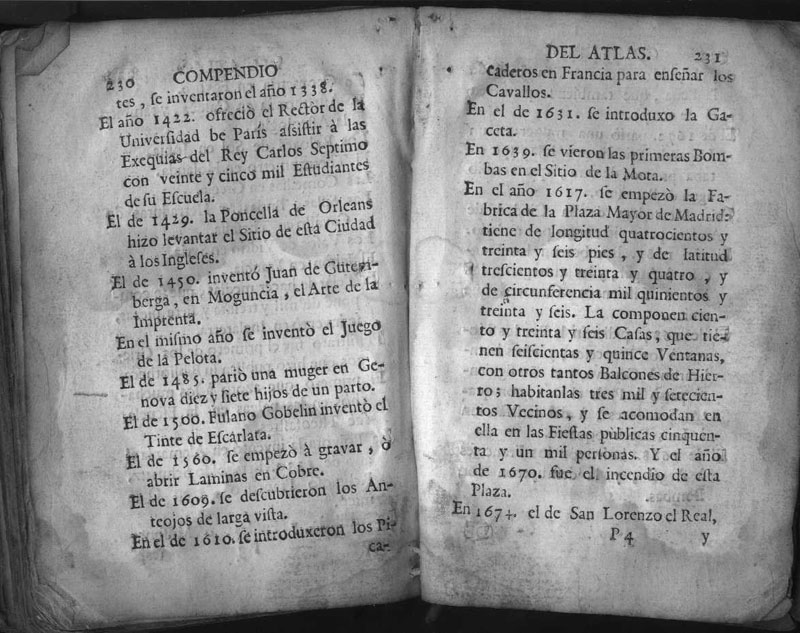 230 COMPENDIO
tes, ſe inventaron el año 1338.
El año 1422. ofreciò el Rector de la
Univerſidad be París aſsiſtir à las
Exequias del Rey Carlos Septimo
con veinte y cinco mil Eſtudiantes
de ſu Eſcuela.
El de 1429. la Poncella de Orleans
hizo levantar el Sitio de eſta Ciudad
à los Ingleſes.
El de 1450. inventó Juan de Gutem-
berga, en Moguncia, el Arte de la
Imprenta.
En el miſmo año ſe inventò el Juego
de la Pelota.
El de 1485. pariò una muger en Ge-
nova diez y ſiete hijos de un parto.
El de 1500. Fulano Gobelin inventò el
Tinte de Eſcarlata.
El de 1560. ſe empezò à gravar, ò
abrir Laminas en Cobre.
El de 1609. ſe deſcubrieron los An-
teojos de larga viſta.
En el de 1610. ſe introduxeron los Pi-
ca-
DEL ATLAS. 231
caderos en Francia para enſeñar los
Cavallos.
En el de 1631. ſe introduxo la Ga-
ceta.
En 1639. ſe vieron las primeras Bom-
bas en el Sitio de la Mota.
En el año 1617. ſe empezò la Fa-
brica de la Plaza Mayor de Madrid:
tiene de longitud quatrocientos y
treinta y ſeis pies, y de latitud
treſcientos y treinta y quatro, y
de circunferencia mil quinientos y
treinta y ſeis. La componen cien-
to y treinta y ſeis Caſas, que tie-
nen ſeiſcientas y quince Ventanas,
con otros tantos Balcones de Hier-
ro; habitanlas tres mil y ſetecien-
tos Vecinos, y ſe acomodan en
ella en las Fieſtas pùblicas cinquen-
ta y un mil perſonas. Y el año
de 1670. fue el incendio de eſta
Plaza.
En 1674. el de San Lorenzo el Real,
P 4 y